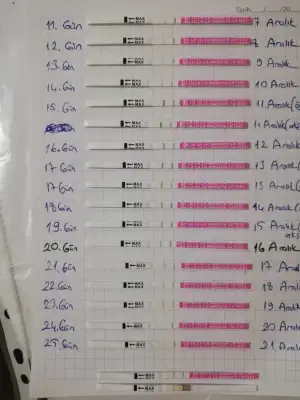 Tarih
11. Gün MAX 7 Aralık
12. Gün MAX 8 Aralık
13. Gün MAX 9 Aralık
14. Gün MAX 10 Aralık
15. Gün MAX 11 Aralık
MAX 11 Aralık
16. Gün MAX 12 Aralık
17. Gün MAX 13 Aralık
17. Gün MAX 13 Aralık
18. Gün MAX 14 Aralık
19. Gün MAX 15 Aralık
20. Gün MAX 16 Aralık
21. Gün MAX 17 Aralık
22. Gün MAX 18 Aralık
23. Gün MAX 19 Aralık
24. Gün MAX 20 Aralık
25. Gün MAX 21 Aralık
MAX
MAX